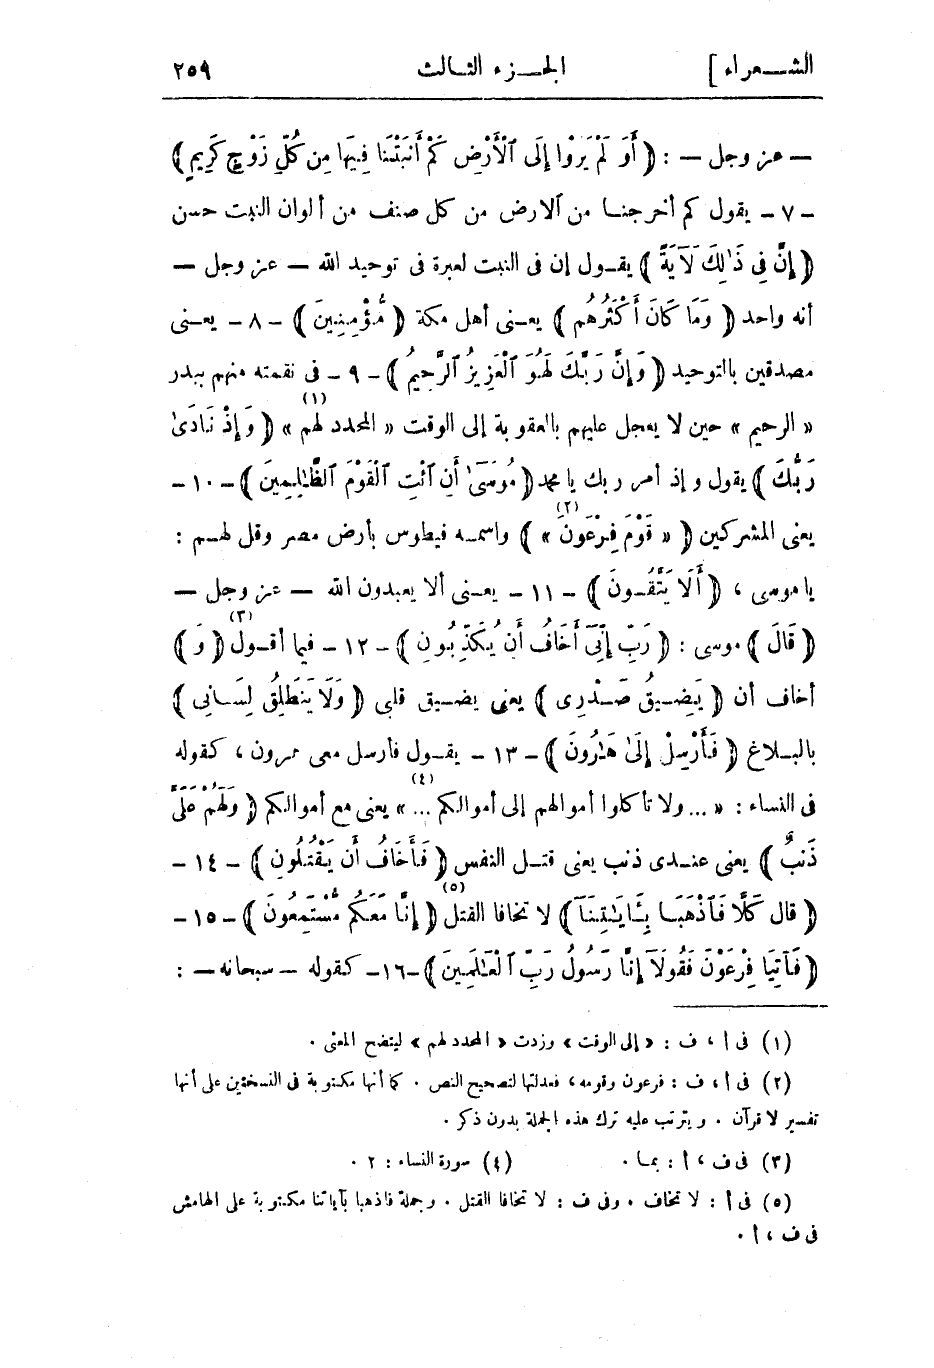 الشـعراء ] الجـزء الثـالث ٢٥٩
— عز وجل — : ( أَوَ لَمْ يَرَوْا إِلَى ٱلْأَرْضِ كَمْ أَنبَتْنَا فِيهَا مِن كُلِّ زَوْجٍ كَرِيمٍ )
– ٧ – يقول كم أخرجنـا من الارض من كل صنف من ألوان النبت حسن
( إِنَّ فِي ذَٰلِكَ لَآيَةً ) يقـول إن فى النبت لعبرة فى توحيد الله — عز وجل —
أنه واحد ( وَمَا كَانَ أَكْثَرُهُم ) يعـنى أهل مكة ( مُّؤْمِنِينَ ) – ٨ – يعـنى
مصدقين بالتوحيد ( وَإِنَّ رَبَّكَ لَهُوَ ٱلْعَزِيزُ ٱلرَّحِيمُ ) – ٩ – فى نقمته منهم ببدر
« الرحيم » حين لا يعجل عليهم بالعقوبة إلى الوقت « المحدد لهم » (١) ( وَإِذْ نَادَىٰ
رَبُّكَ ) يقول وإذ أمر ربك يا محمد ( مُوسَىٰٓ أَنِ ٱئْتِ ٱلْقَوْمَ ٱلظَّٰلِمِينَ ) – ١٠ –
يعنى المشركين ( « قَوْمَ فِرْعَوْنَ » (٢) ) واسمـه فيطوس بأرض مصر وقل لهـم :
يا موسى ، ( أَلَا يَتَّقُـونَ ) – ١١ – يعـنى ألا يعبدون الله — عز وجل —
( قَالَ ) موسى : ( رَبِّ إِنِّىٓ أَخَافُ أَن يُكَذِّبُونِ ) – ١٢ – فيما أقـول (٣) ( وَ )
أخاف أن ( يَضِـيقُ صَـدْرِى ) يعنى يضـيق قلبى ( وَلَا يَنطَلِقُ لِسَـانِى )
بالبـلاغ ( فَأَرْسِلْ إِلَىٰ هَٰرُونَ ) – ١٣ – يقـول فأرسل معى هرون ، كقوله
فى النساء : « ... ولا تأكلوا أموالهم إلى أموالكم ... » (٤) يعنى مع أموالكم ( وَلَهُمْ عَلَىَّ
ذَنبٌ ) يعنى عنـدى ذنب يعنى قتـل النفس ( فَأَخَافُ أَن يَقْتُلُونِ ) – ١٤ –
( قال كَلَّا فَٱذْهَبَـا بِـَٔايَٰتِنَآ ) لا تخافا القتل (٥) ( إِنَّا مَعَكُم مُّسْتَمِعُونَ ) – ١٥ –
( فَأْتِيَا فِرْعَوْنَ فَقُولَآ إِنَّا رَسُولُ رَبِّ ٱلْعَٰلَمِينَ ) – ١٦ – كقوله — سبحانه — :
(١) فى أ ، ف : « إلى الوقت » وزدت « المحدد لهم » ليتضح المعنى .
(٢) فى أ ، ف : فرعون وقومه ، فعدلتها لتصحيح النص . كما أنها مكتوبة فى النسختين على أنها
تفسير لا قرآن . ويترتب عليه ترك هذه الجملة بدون ذكر .
(٣) فى ف ، أ : بمـا . (٤) سورة النساء : ٢ .
(٥) فى أ : لا تخاف . وفى ف : لا تخافا القتل . وجملة فاذهبا بآياتنا مكتوبة على الهامش
فى ف ، أ .